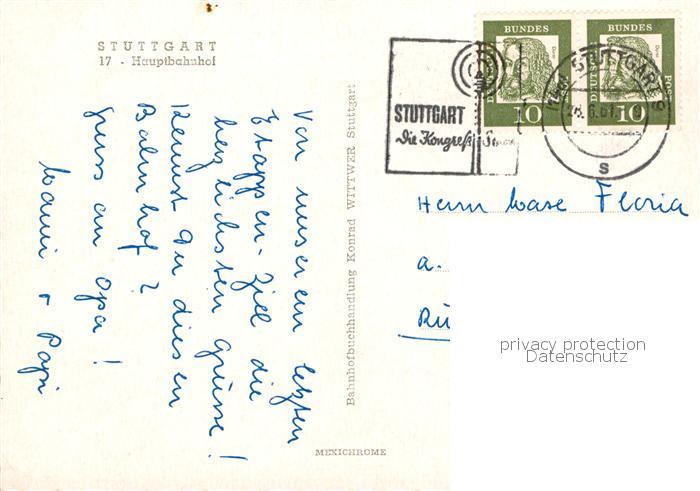 STUTTGART
17 - Hauptbahnhof
Von unserem letzten
Etappen-Ziel die
herzlichsten Grüsse!
Kennst Du diesen
Bahnhof?
Gruss an Opa!
Mami + Papi
Bahnhofbuchhandlung Konrad WITTWER Stuttgart
MEXICHROME
STUTTGART
Die Kongreß
BUNDES
DEUTSCHE
10
BUNDES
DEUTSCHE
POST
10
STUTTGART 9
26.6.61
S
Herrn Floria
a.
Rü
privacy protection
Datenschutz